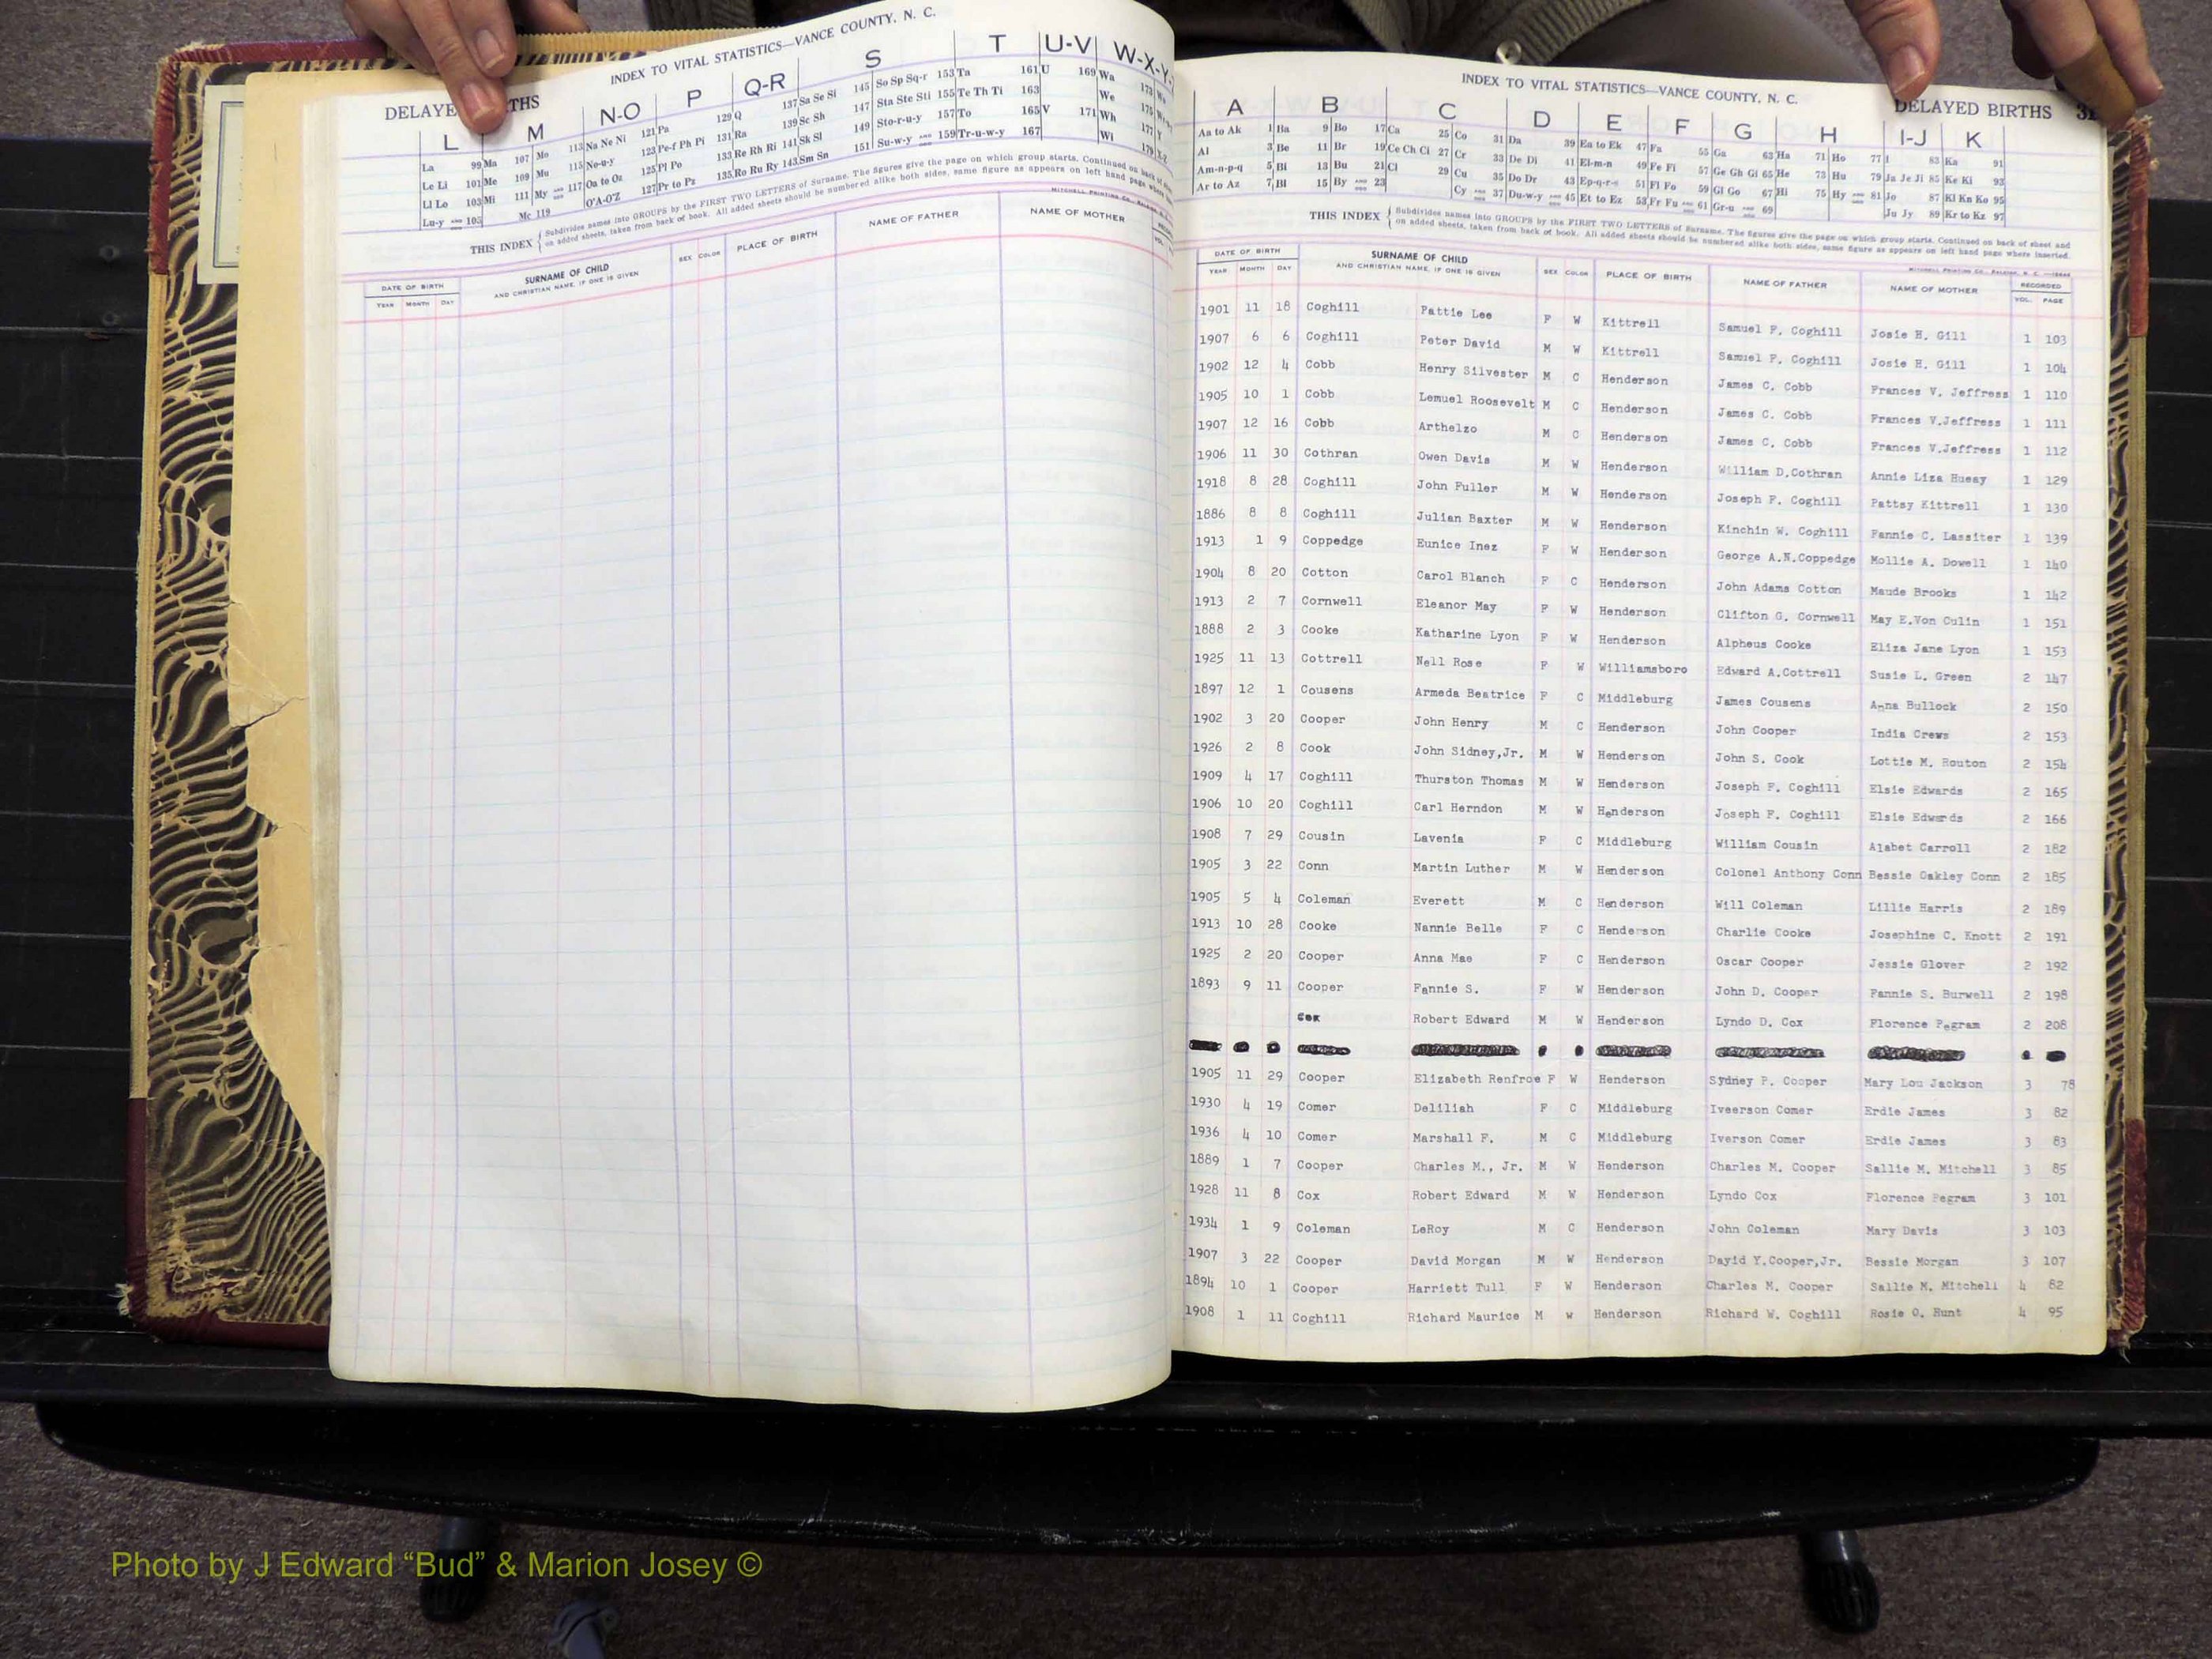 INDEX TO VITAL STATISTICS—VANCE COUNTY, N. C.
L M N-O P Q-R S T U-V W-X-Y
La 99 Ma 107 Mo 113 Na Ne Ni 121 Pa 129 Q 137 Sa Se Si 145 So Sp Sq-r 153 Ta 161 U 169 Wa 173
Le Li 101 Me 109 Mu 115 No-u-y 123 Pe-f Ph Pi 131 Ra 139 Sc Sh 147 Sta Ste Sti 155 Te Th Ti 163 We 175
Ll Lo 103 Mi 111 My AND 117 Oa to Oz 125 Pl Po 133 Re Rh Ri 141 Sk Sl 149 Sto-r-u-y 157 To 165 V 171 Wh 177
Lu-y AND 105 Mc 119 O'A-O'Z 127 Pr to Pz 135 Ro Ru Ry 143 Sm Sn 151 Su-w-y AND 159 Tr-u-w-y 167 Wi 179
THIS INDEX { Subdivides names into GROUPS by the FIRST TWO LETTERS of Surname. The figures give the page on which group starts. Continued on back of
on added sheets, taken from back of book. All added sheets should be numbered alike both sides, same figure as appears on left hand page where
DATE OF BIRTH SURNAME OF CHILD SEX COLOR PLACE OF BIRTH NAME OF FATHER NAME OF MOTHER
YEAR MONTH DAY AND CHRISTIAN NAME, IF ONE IS GIVEN
INDEX TO VITAL STATISTICS—VANCE COUNTY, N. C. DELAYED BIRTHS
A B C D E F G H I-J K
Aa to Ak 1 Ba 9 Bo 17 Ca 25 Co 31 Da 39 Ea to Ek 47 Fa 55 Ga 63 Ha 71 Ho 77 I 83 Ka 91
Al 3 Be 11 Br 19 Ce Ch Ci 27 Cr 33 De Di 41 El-m-n 49 Fe Fi 57 Ge Gh Gi 65 He 73 Hu 79 Ja Je Ji 85 Ke Ki 93
Am-n-p-q 5 Bi 13 Bu 21 Cl 29 Cu 35 Do Dr 43 Ep-q-r-s 51 Fl Fo 59 Gl Go 67 Hi 75 Hy AND 81 Jo 87 Kl Kn Ko 95
Ar to Az 7 Bl 15 By AND 23 Cy AND 37 Du-w-y AND 45 Et to Ez 53 Fr Fu AND 61 Gr-u AND 69 Ju Jy 89 Kr to Kz 97
THIS INDEX { Subdivides names into GROUPS by the FIRST TWO LETTERS of Surname. The figures give the page on which group starts. Continued on back of sheet and
on added sheets, taken from back of book. All added sheets should be numbered alike both sides, same figure as appears on left hand page where inserted.
DATE OF BIRTH SURNAME OF CHILD SEX COLOR PLACE OF BIRTH NAME OF FATHER NAME OF MOTHER RECORDED
YEAR MONTH DAY AND CHRISTIAN NAME, IF ONE IS GIVEN VOL. PAGE
1901 11 18 Coghill Pattie Lee F W Kittrell Samuel F. Coghill Josie H. Gill 1 103
1907 6 6 Coghill Peter David M W Kittrell Samuel F. Coghill Josie H. Gill 1 104
1902 12 4 Cobb Henry Silvester M C Henderson James C. Cobb Frances V. Jeffress 1 110
1905 10 1 Cobb Lemuel Roosevelt M C Henderson James C. Cobb Frances V.Jeffress 1 111
1907 12 16 Cobb Arthelzo M C Henderson James C. Cobb Frances V.Jeffress 1 112
1906 11 30 Cothran Owen Davis M W Henderson William D.Cothran Annie Liza Huesy 1 129
1918 8 28 Coghill John Fuller M W Henderson Joseph F. Coghill Pattsy Kittrell 1 130
1886 8 8 Coghill Julian Baxter M W Henderson Kinchin W. Coghill Fannie C. Lassiter 1 139
1913 1 9 Coppedge Eunice Inez F W Henderson George A.N.Coppedge Mollie A. Dowell 1 140
1904 8 20 Cotton Carol Blanch F C Henderson John Adams Cotton Maude Brooks 1 142
1913 2 7 Cornwell Eleanor May F W Henderson Clifton G. Cornwell May E.Von Culin 1 151
1888 2 3 Cooke Katharine Lyon F W Henderson Alpheus Cooke Eliza Jane Lyon 1 153
1925 11 13 Cottrell Nell Rose F W Williamsboro Edward A.Cottrell Susie L. Green 2 147
1897 12 1 Cousens Armeda Beatrice F C Middleburg James Cousens Anna Bullock 2 150
1902 3 20 Cooper John Henry M C Henderson John Cooper India Crews 2 153
1926 2 8 Cook John Sidney,Jr. M W Henderson John S. Cook Lottie M. Routon 2 154
1909 4 17 Coghill Thurston Thomas M W Henderson Joseph F. Coghill Elsie Edwards 2 165
1906 10 20 Coghill Carl Herndon M W Henderson Joseph F. Coghill Elsie Edwards 2 166
1908 7 29 Cousin Lavenia F C Middleburg William Cousin Alabet Carroll 2 182
1905 3 22 Conn Martin Luther M W Henderson Colonel Anthony Conn Bessie Oakley Conn 2 185
1905 5 4 Coleman Everett M C Henderson Will Coleman Lillie Harris 2 189
1913 10 28 Cooke Nannie Belle F C Henderson Charlie Cooke Josephine C. Knott 2 191
1925 2 20 Cooper Anna Mae F C Henderson Oscar Cooper Jessie Glover 2 192
1893 9 11 Cooper Fannie S. F W Henderson John D. Cooper Fannie S. Burwell 2 198
Cox Robert Edward M W Henderson Lyndo D. Cox Florence Pegram 2 208
1905 11 29 Cooper Elizabeth Renfroe F W Henderson Sydney P. Cooper Mary Lou Jackson 3 78
1930 4 19 Comer Deliliah F C Middleburg Iveerson Comer Erdie James 3 82
1936 4 10 Comer Marshall F. M C Middleburg Iverson Comer Erdie James 3 83
1889 1 7 Cooper Charles M., Jr. M W Henderson Charles M. Cooper Sallie M. Mitchell 3 85
1928 11 8 Cox Robert Edward M W Henderson Lyndo Cox Florence Pegram 3 101
1934 1 9 Coleman LeRoy M C Henderson John Coleman Mary Davis 3 103
1907 3 22 Cooper David Morgan M W Henderson David Y.Cooper,Jr. Bessie Morgan 3 107
1894 10 1 Cooper Harriett Tull F W Henderson Charles M. Cooper Sallie M. Mitchell 4 82
1908 1 11 Coghill Richard Maurice M W Henderson Richard W. Coghill Rosie O. Hunt 4 95
Photo by J Edward “Bud” & Marion Josey ©